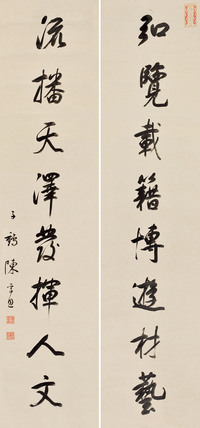 弘覽載籍博遊材藝
流播天澤發揮人文
子鶴陳孚恩